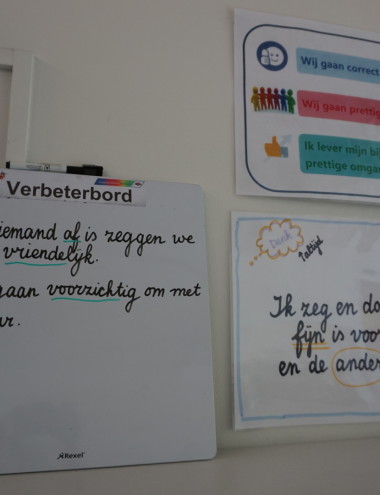 Verbeterbord
iemand af is zeggen we
vriendelijk.
gaan voorzichtig om met
ar.
Rexel
Wij gaan correct
Wij gaan prettig
Ik lever mijn bij
prettige omgan
Denk
altijd
Ik zeg en do
fijn is voor
en de ander